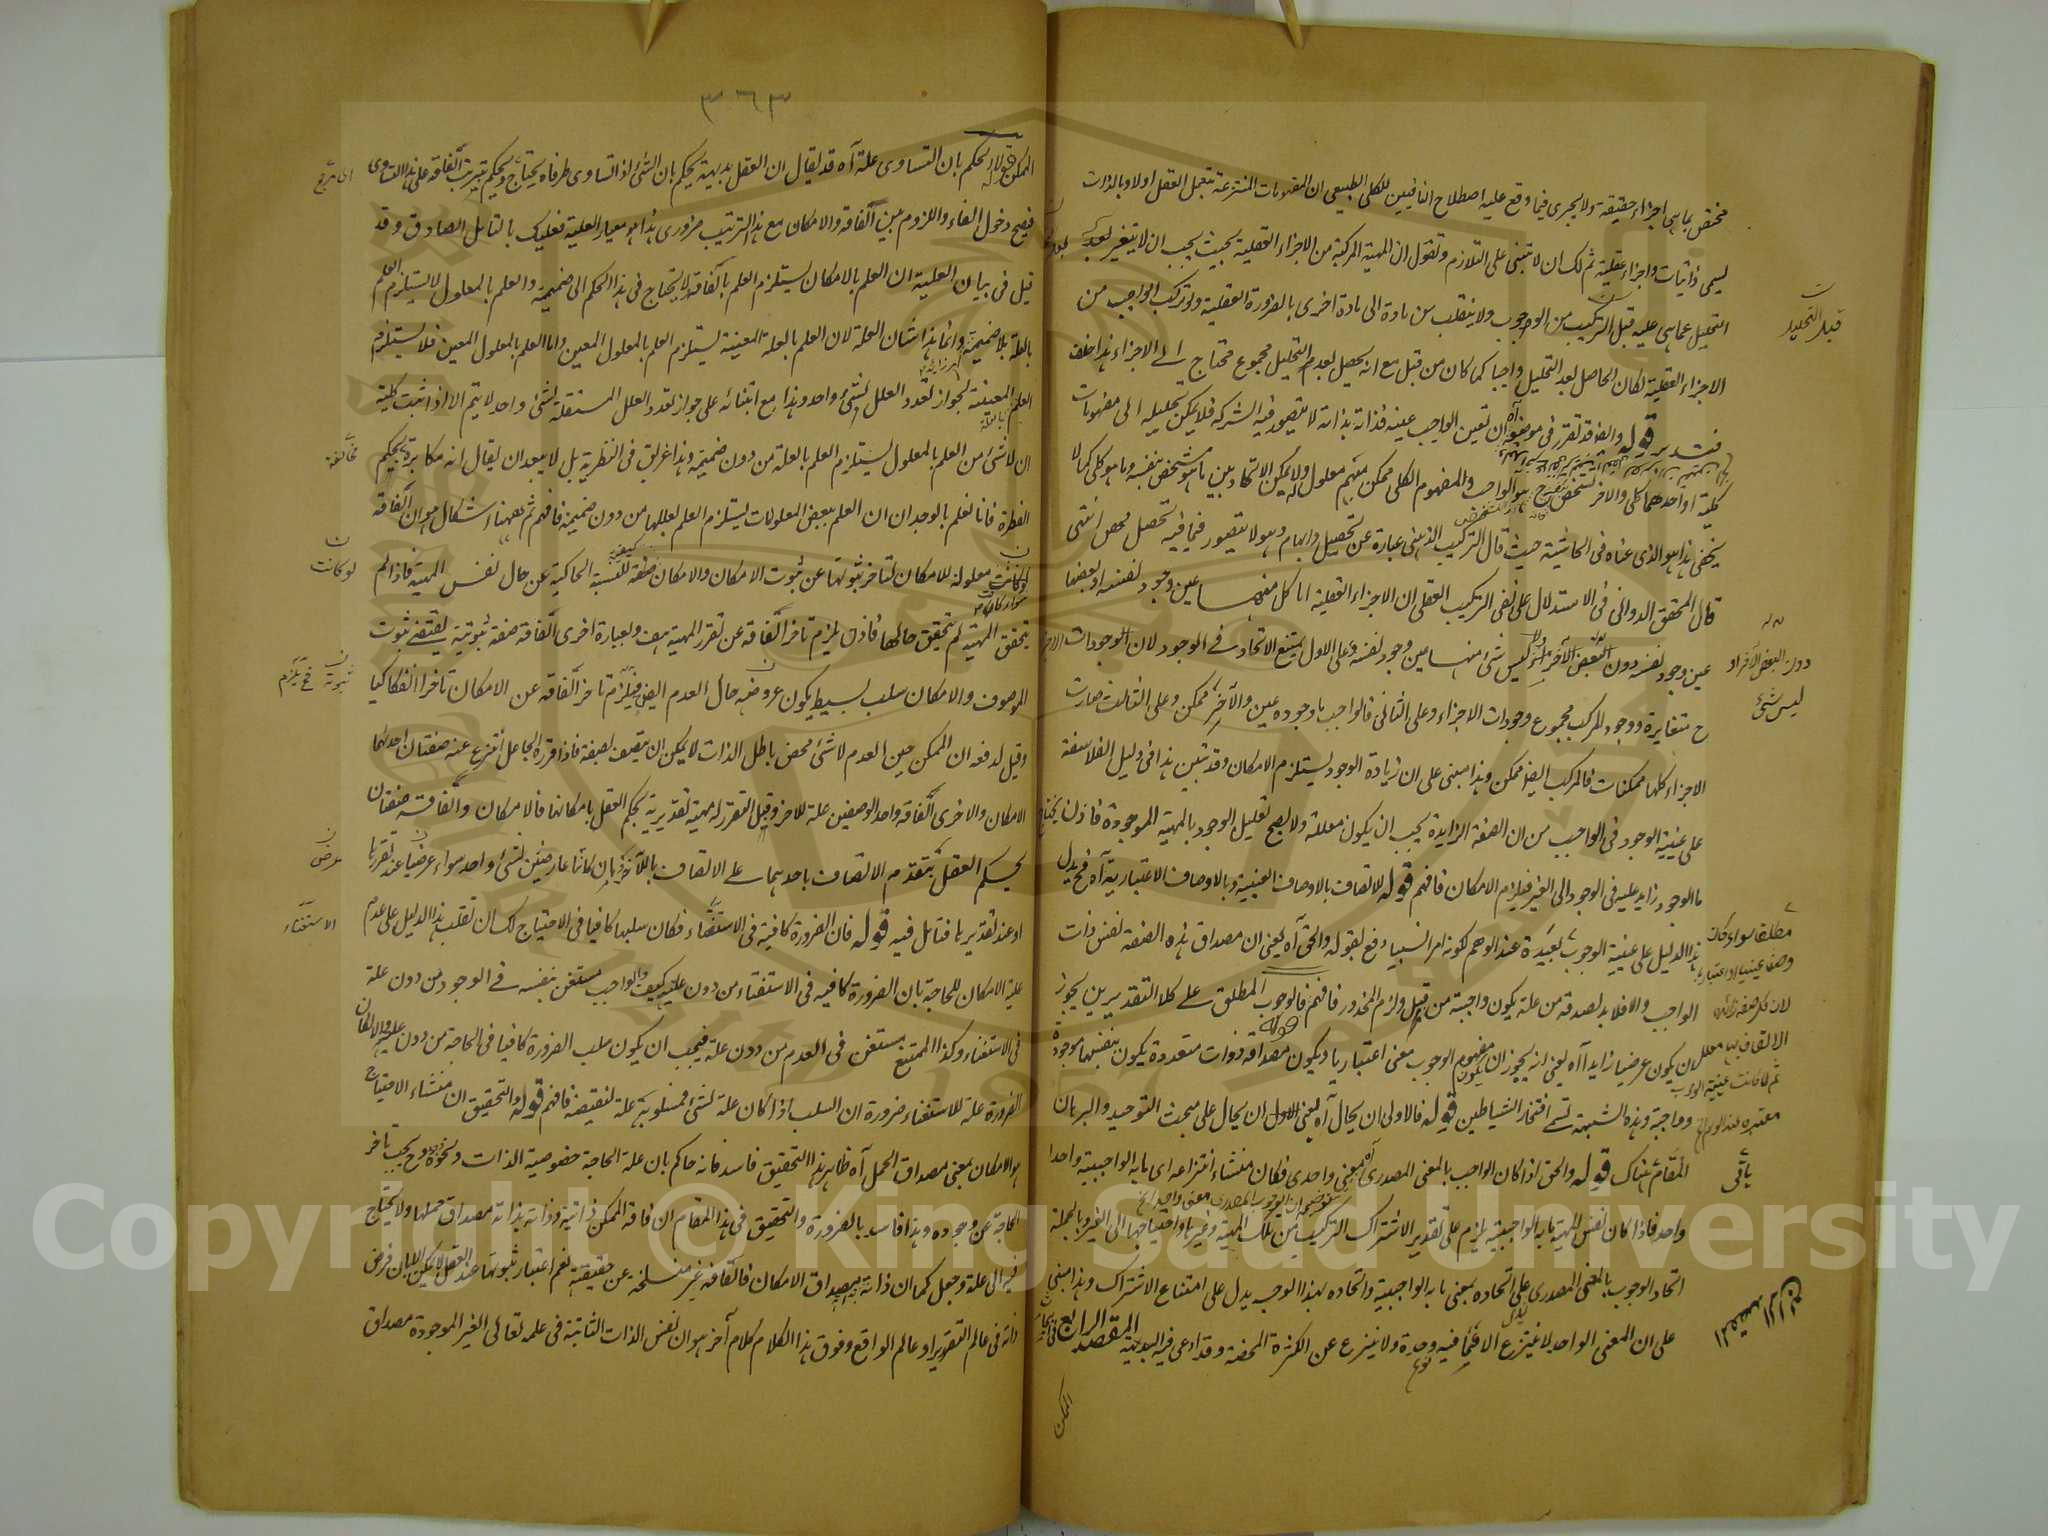 مختص بما هى اجزاء حقيقة ولا يجرى فيما وقع عليه اصطلاح النافيين للكلى الطبيعى ان المفهومات المنتزعة بتعمل العقل اولا وبالذات
يسمى ذاتيات واجزاء عقلية ثم لك ان لا تبتنى على التلازم وتقول ان المهية المركبة من الاجزاء العقلية بحيث يجب ان لا يتغير بعد
التحليل عما هى عليه قبل التركيب من الوجوب ولا ينقلب من مادة الى مادة اخرى بالضرورة العقلية ولو تركب الواجب من
الاجزاء العقلية لكان الحاصل بعد التحليل واجبا كما كان من قبل مع انه يحصل بعد التحليل مجموع محتاج الى الاجزاء هذا خلف
فتدبر قوله وايضا قد تقرر فى موضعه آه ان تعين الواجب عينه فذاته بذاته لا يتصور فيه الشركة فلا يمكن تحليله الى مفهومات
كلية او احدهما كلى والاخر تشخص هو الواجب والمفهوم الكلى ممكن مبهم معلول له ولا يمكن الاتحاد بين ما هو متشخص بنفسه وما هو كلى كما لا
يخفى هذا هو الذى عناه فى الحاشية حيث قال التركيب الذهنى عبارة عن تحصيل وابهام وهو لا يتصور فيما فيه تحصل محض انتهى
قال المحقق الدوانى فى الاستدلال على نفى التركيب العقلى ان الاجزاء العقلية اما كل منهما عين وجود نفسه او بعضها
عين وجود نفسه دون البعض الآخر او ليس شئ منهما عين وجود نفسه وعلى الاول يمتنع الاتحاد فى الوجود لان الوجودات
ح متغايرة ووجود المركب مجموع وجودات الاجزاء وعلى الثانى فالواجب ما وجوده عين والآخر ممكن وعلى الثالث صارت
الاجزاء كلها ممكنات فالمركب ايضا ممكن وهذا مبنى على ان زيادة الوجود يستلزم الامكان وقد تبين هذا فى دليل الفلاسفة
على عينية الوجود فى الواجب من ان الصفة الزايدة يجب ان يكون معللة ولا يصح تعليل الوجود بالمهية الموجودة فاذن يحتاج
ما الوجود زايد عليه فى الوجود الى الغير فيلزم الامكان فافهم قوله للاتصاف بالاوصاف العينية وبالاوصاف الاعتبارية آه فح يدل
هذا الدليل على عينية الوجوب بعيدة عند الوهم لكونه امرا نسبيا دفع لقوله والحق آه يعنى ان مصداق هذه الصفة نفس ذات
الواجب والا فلا بد لصدقه من علة يكون واجبة من قبل ولزم المحذور فافهم فالوجوب المطلق على كلا التقديرين يجوز
ان يكون عرضيا زايدا آه يعنى انه يجوز ان يكون مفهوم الوجوب معنى اعتباريا ويكون مصداقه ذوات متعددة يكون بنفسها موجودة
وواجبة وهذه الشبهة تسمى افتخار الشياطين قوله فالاولى ان يحال آه يعنى الاولى ان يحال على مبحث التوحيد والبرهان
المقام هناك قوله والحق اذا كان الواجب بالمعنى المصدرى آه بمعنى واحدى فكان منشاء انتزاعه اى ما به الواجبية واحدا
واحد فاذا كان نفس المهية ما به الواجبية يلزم على تقدير الاشتراك التركيب من تلك المهية وغيرها واحتياجها الى الغير وبالجملة
اتحاد الوجوب بالمعنى المصدرى على اتحاده بمعنى ما به الواجبية واتحاده بهذا الوجه يدل على امتناع الاشتراك وهذا مبنى
على ان المعنى الواحد لا ينتزع الا فيما فيه وحدة ولا ينتزع عن الكثرة المحضة وقد ادعى فيه البداهة المقصد الرابع
الممكن
قبل التحليل
دون البعض الآخر او
ليس شئ
مطلقا سواء كان
وصفا عينيا او اعتباريا
باقى
المقصد الرابع
٣٦٣
الممكن قوله لا يحكم بان التساوى علة آه قد يقال ان العقل بديهة يحكم بان الشئ اذا تساوى طرفاه يحتاج ويحكم بترتب الفاقة على هذا التساوى
فيصح دخول الفاء واللزوم بين الفاقة والامكان مع هذا الترتيب ضرورى هذا هو معيار العلية فعليك بالتامل الصادق وقد
قيل فى بيان العلية ان العلم بالامكان يستلزم العلم بالفاقة ولا يحتاج فى هذا الحكم الى ضميمة والعلم بالمعلول لا يستلزم العلم
بالعلة بلا ضميمة وانما هذا شان العلة لان العلم بالعلة المعينة يستلزم العلم بالمعلول المعين واما العلم بالمعلول المعين فلا يستلزم
العلم المعينة لجواز تعدد العلل لشئ واحد وهذا مع ابتنائه على جواز تعدد العلل المستقلة لشئ واحد لا يتم الا اذا ثبت كلية
ان لا شئ من العلم بالمعلول يستلزم العلم بالعلة من دون ضميمة وهذا غريق فى النظرية بل لا يبعد ان يقال انه مكابرة يحكم
الفطرة فانا نعلم بالوجدان ان العلم ببعض المعلولات يستلزم العلم لعللها من دون ضميمة فافهم ثم ههنا اشكال هو ان الفاقة
لو كانت معلولة للامكان لتاخر ثبوتها عن ثبوت الامكان والامكان كيفية للنسبة الحاكية عن حال نفس المهية فاذا لم
يتحقق المهية لم يتحقق حالها فاذن يلزم تاخر الفاقة عن تقرر المهية هف وبعبارة اخرى الفاقة صفة ثبوتية يقتضى ثبوت
الموصوف والامكان سلب بسيط يكون عروضه حال العدم ايضا فيلزم تاخر الفاقة عن الامكان تاخرا انفكاكيا
وقيل لدفعه ان الممكن حين العدم لا شئ محض باطل الذات لا يمكن ان يتصف بصفة فاذا قرره الجاعل انتزع عنه صفتان احدهما
الامكان والاخرى الفاقة واحد الوصفين علة للاخر وقبل التقرر له مهية تقديرية يحكم العقل بامكانها فالامكان والفاقة صفتان
يحكم العقل بتقدم الاتصاف باحدهما على الاتصاف بالآخر بان كانتا عارضتين لشئ واحد سواء عرضتا عند تقررها
او عند تقديرها فتامل فيه قوله فان الضرورة كافية فى الاستغناء فكان سلبها كافيا فى الاحتياج لك ان تقلب هذا الدليل على عدم
علية الامكان للحاجة بان الضرورة كافية فى الاستغناء من دون علية كيف والواجب مستغن بنفسه فى الوجود من دون علة
فى الاستغناء وكذا الممتنع مستغن فى العدم من دون علة فيجب ان يكون سلب الضرورة كافيا فى الحاجة من دون علية والا لكان
الضرورة علة للاستغناء ضرورة ان السلب اذا كان علة لشئ فمسلوبه علة لنقيضه فافهم قوله والتحقيق ان منشاء الاحتياج
هو الامكان بمعنى مصداق الحمل آه ظاهر هذا التحقيق فاسد فانه حاكم بان علة الحاجة خصوصية الذات وح يجب تاخر
الحاجة عن وجوده وهذا فاسد بالضرورة والتحقيق فى هذا المقام ان فاقة الممكن ذاتية وذاته بذاته مصداق حملها ولا يحتاج
فيه الى علة وجعل كما ان ذاته مصداق الامكان فالفاقة غير منسلخة عن حقيقته نعم اعتبار ثبوتها عند العقل لا يمكن الا بان فرض
ذاته فى عالم التقدير او عالم الواقع وفوق هذا الكلام كلام آخر هو ان نفس الذات الثابتة فى علمه تعالى الغير الموجودة مصداق
لو كانت
الاستغناء
Copyright © King Saud University